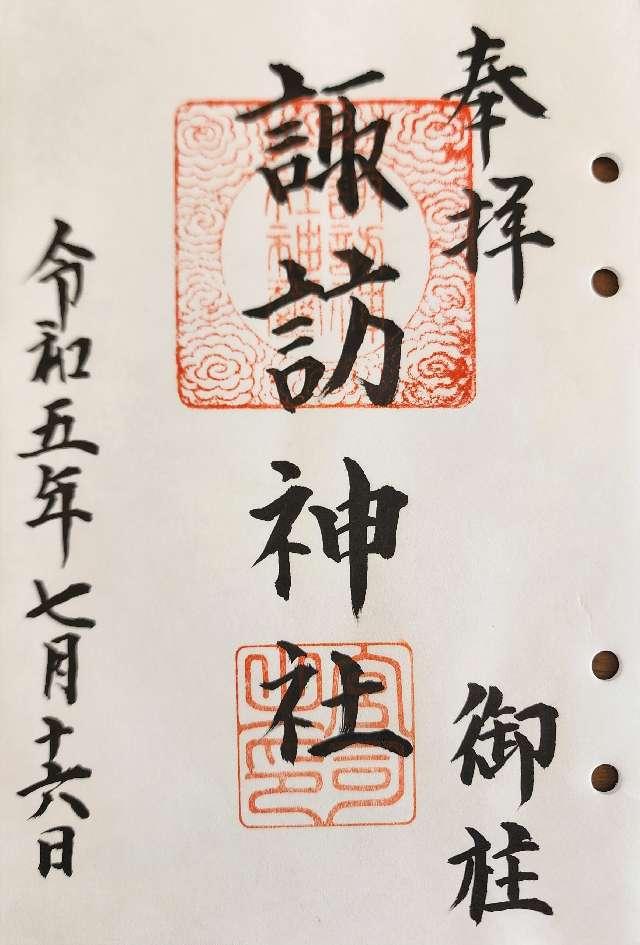 奉拝
御柱
諏訪神社
令和五年七月十六日